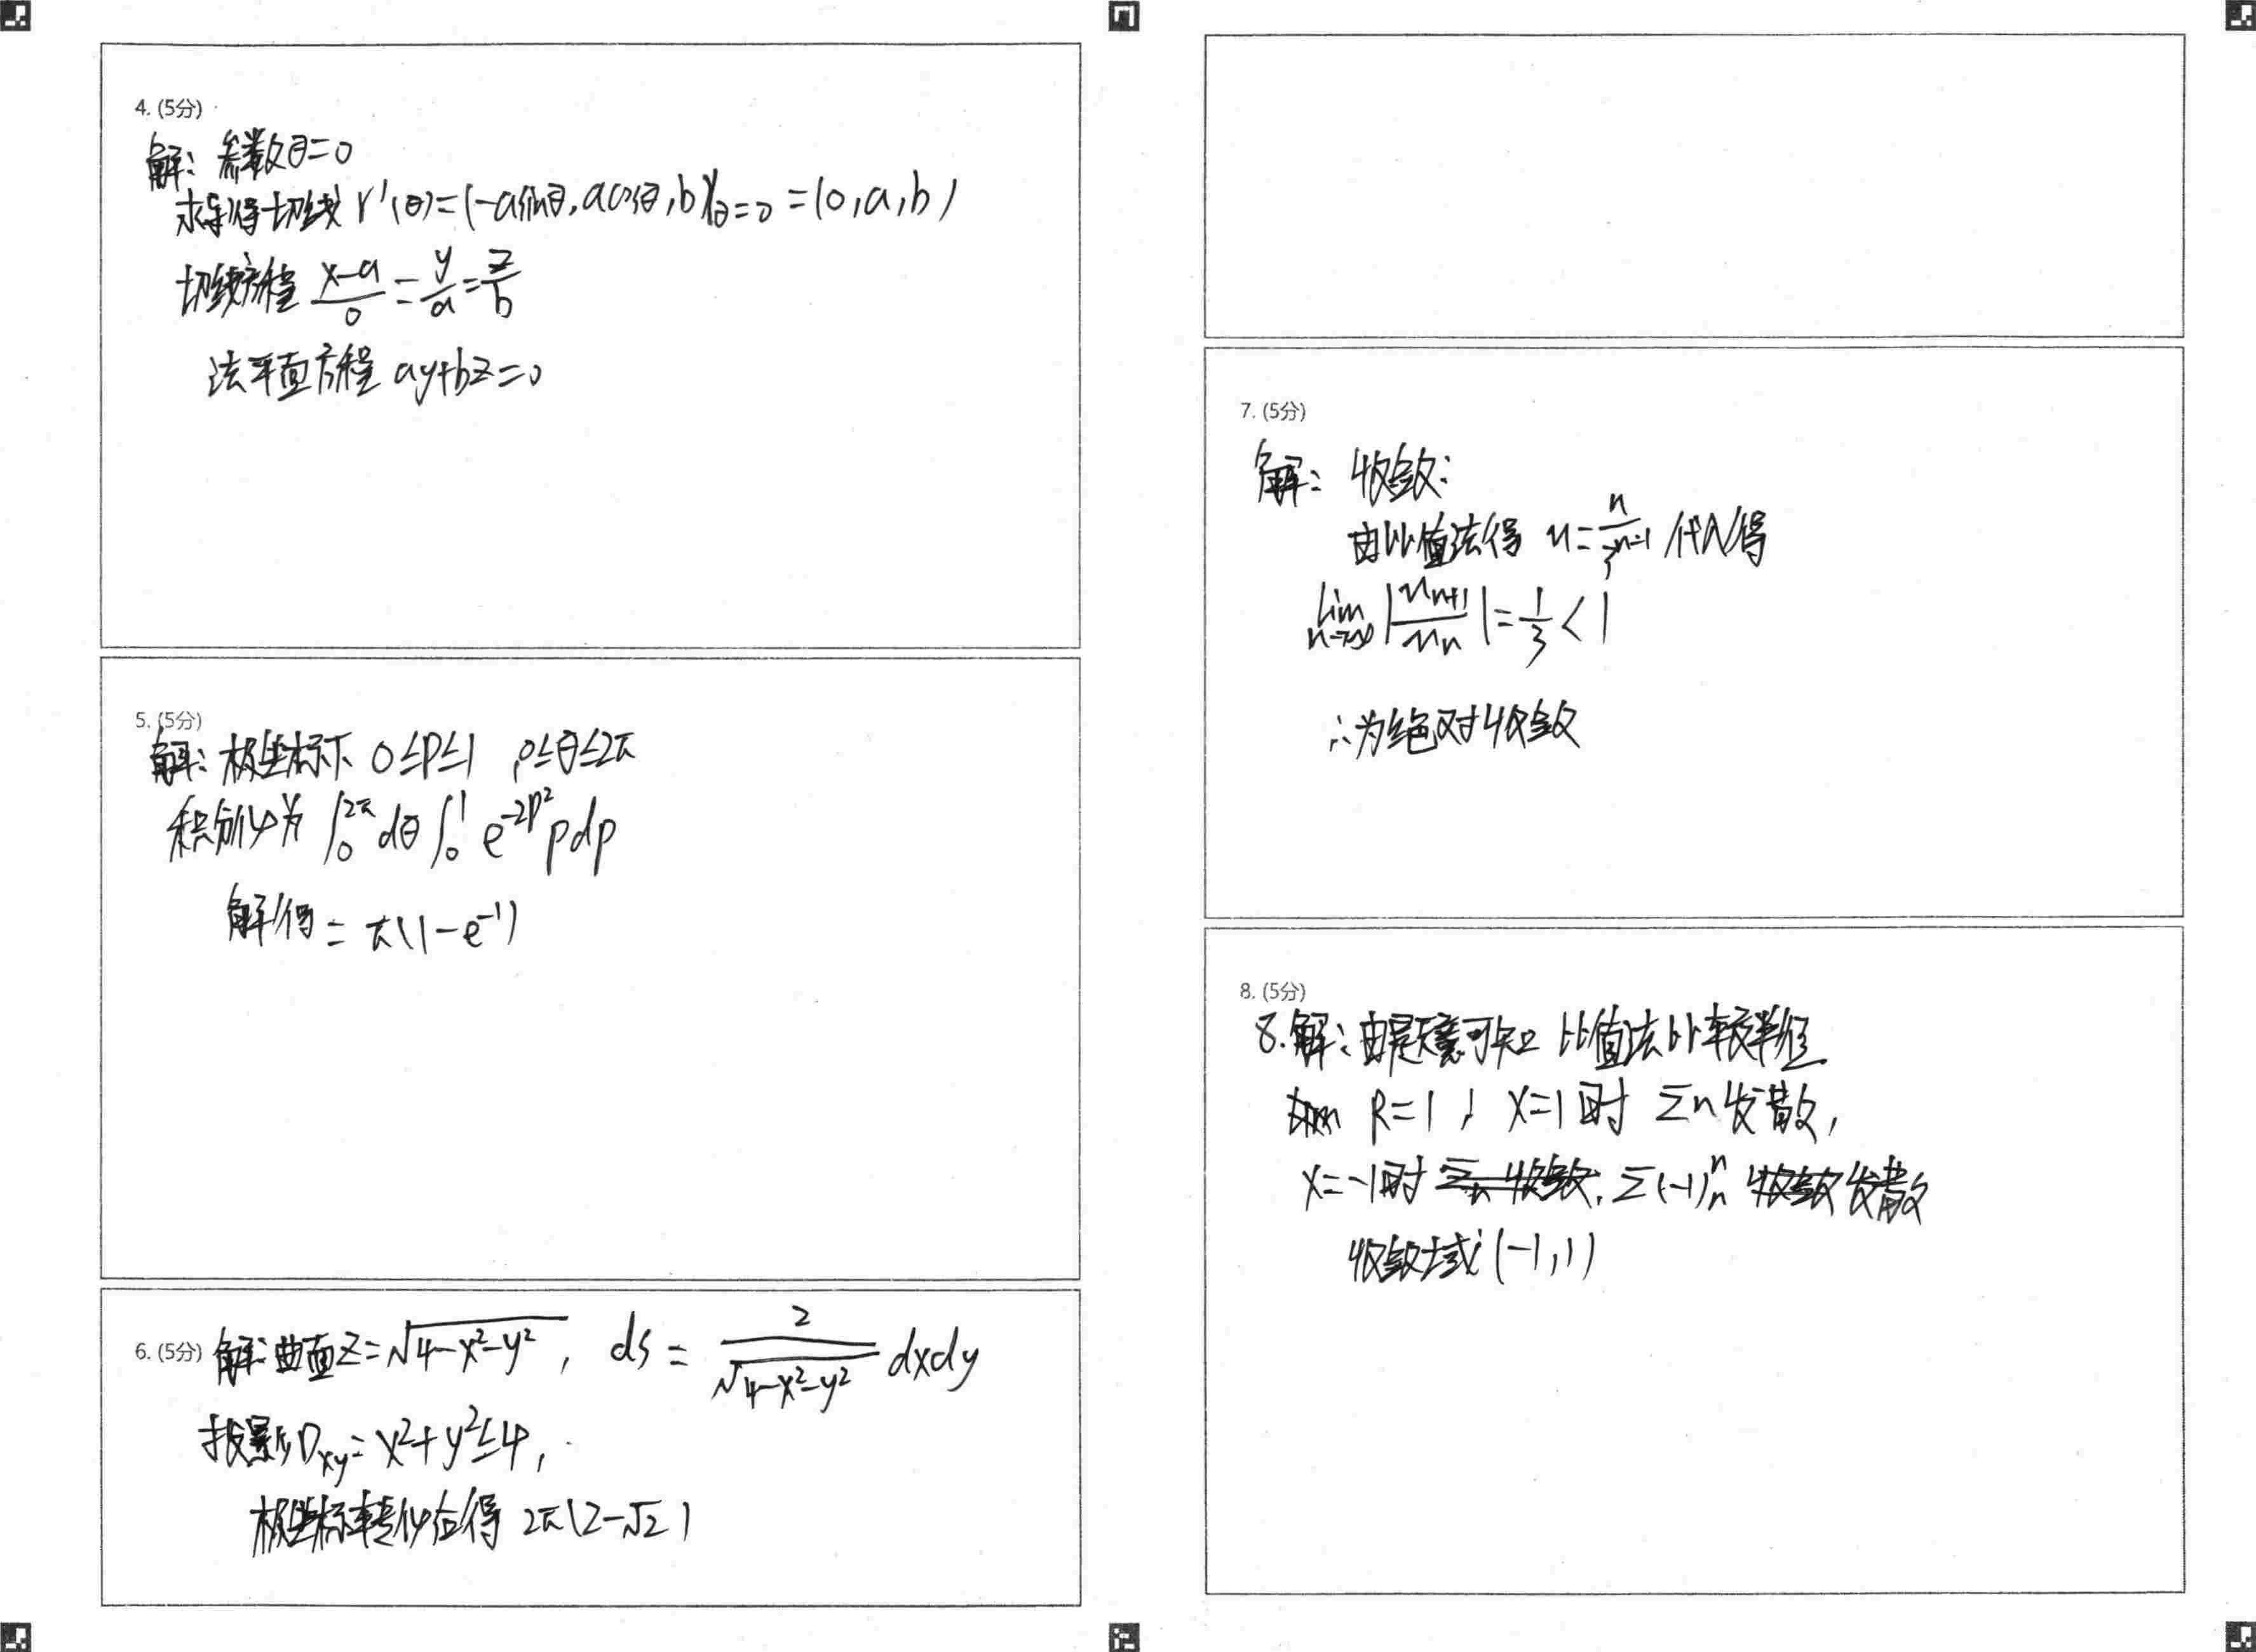 4. (5分)
解：参数θ=0
求导得切线 r'(θ)=(-asinθ, acosθ, b)|θ=0 =(0,a,b)
切线方程 (x-a)/0 = y/a = z/b
法平面方程 ay+bz=0
5. (5分)
解：极坐标下 0≤ρ≤1 , 0≤θ≤2π
积分化为 ∫₀^2π dθ ∫₀^1 e^(-2ρ²) ρdρ
解得 = π(1-e⁻¹)
6. (5分) 解：曲面z=√(4-x²-y²) , ds = 2/√(4-x²-y²) dxdy
投影Dxy：x²+y²≤4,
极坐标转化后得 2π(2-√2)
7. (5分)
解：收敛：
由比值法得 u = n/3^(n-1) 代入得
lim n→∞ |u_(n+1)/u_n| = 1/3 < 1
∴为绝对收敛
8. (5分)
8.解：由题意可知 比值法比较半径
R=1 , x=1时 Σn发散,
x=-1时 Σ(-1)^n n 发散
收敛域(-1,1)